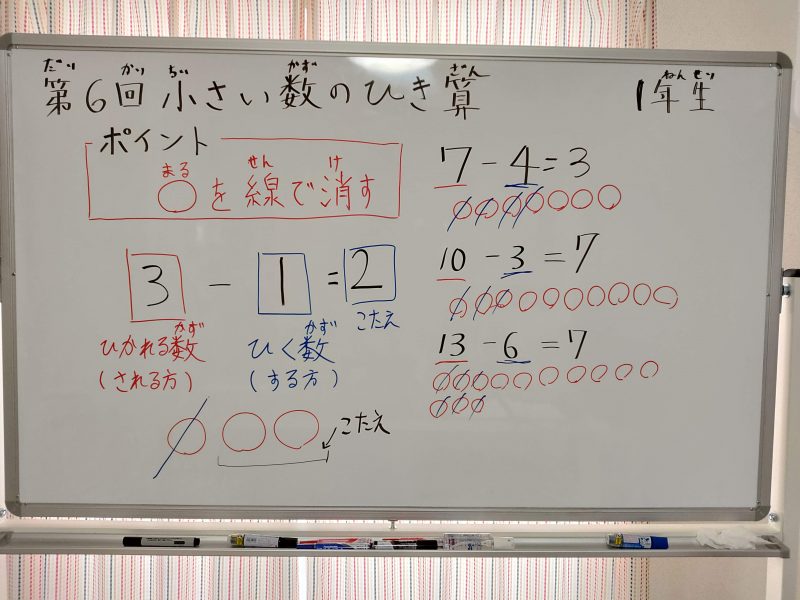 だい かい ちい かず ざん
第6回 小さい数のひき算
ねんせい
1年生
ポイント
まる せん け
○を線で消す
3 - 1 = 2
かず
ひかれる数
(される方)
かず
ひく数
(する方)
こたえ
こたえ
7 - 4 = 3
10 - 3 = 7
13 - 6 = 7